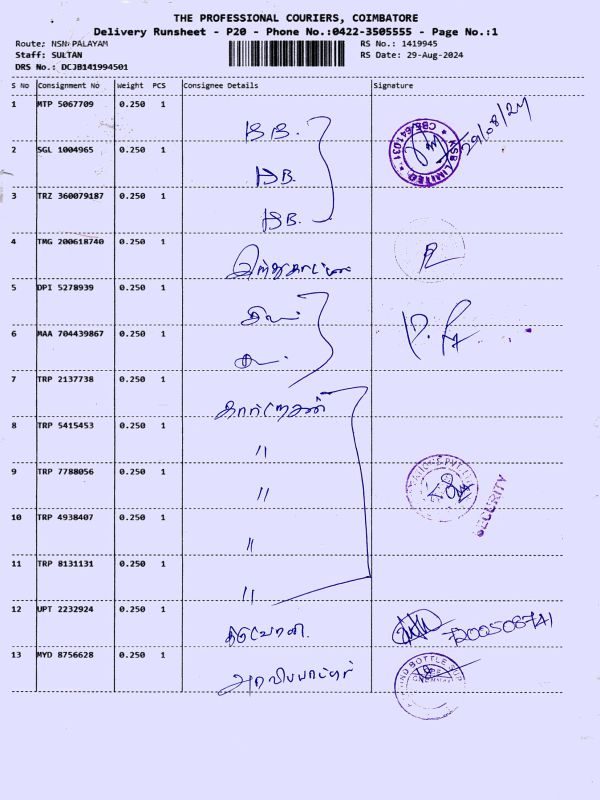 THE PROFESSIONAL COURIERS, COIMBATORE
Delivery Runsheet - P20 - Phone No.:0422-3505555 - Page No.:1
Route: NSN PALAYAM RS No.: 1419945
Staff: SULTAN RS Date: 29-Aug-2024
DRS No.: DCJB141994501
S No Consignment No Weight PCS Consignee Details Signature
1 MTP 5067709 0.250 1
29/08/24
KSB LIMITED
CBE-641031
2 SGL 1004965 0.250 1
3 TRZ 360079187 0.250 1
4 TMG 200618740 0.250 1
5 DPI 5278939 0.250 1
6 MAA 704439867 0.250 1
7 TRP 2137738 0.250 1
8 TRP 5415453 0.250 1 "
9 TRP 7788056 0.250 1 "
SECURITY
10 TRP 4938407 0.250 1 "
11 TRP 8131131 0.250 1 "
12 UPT 2232924 0.250 1
13 MYD 8756628 0.250 1